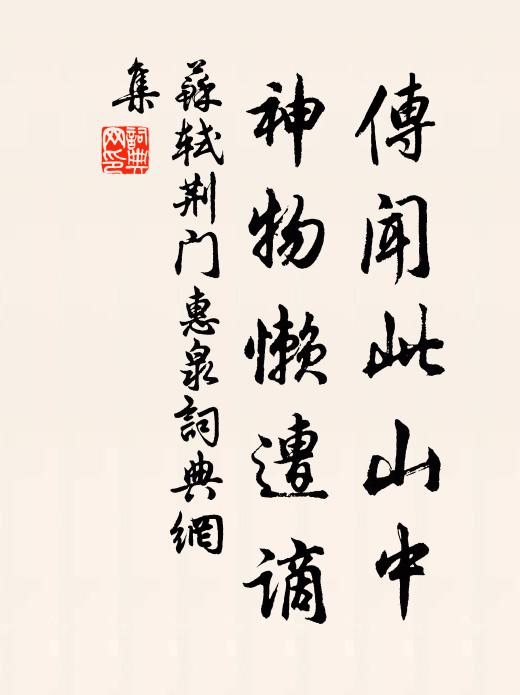 傳聞此山中
神物懶遭謫
蘇軾荆门惠泉詞典網
集
詞典网印